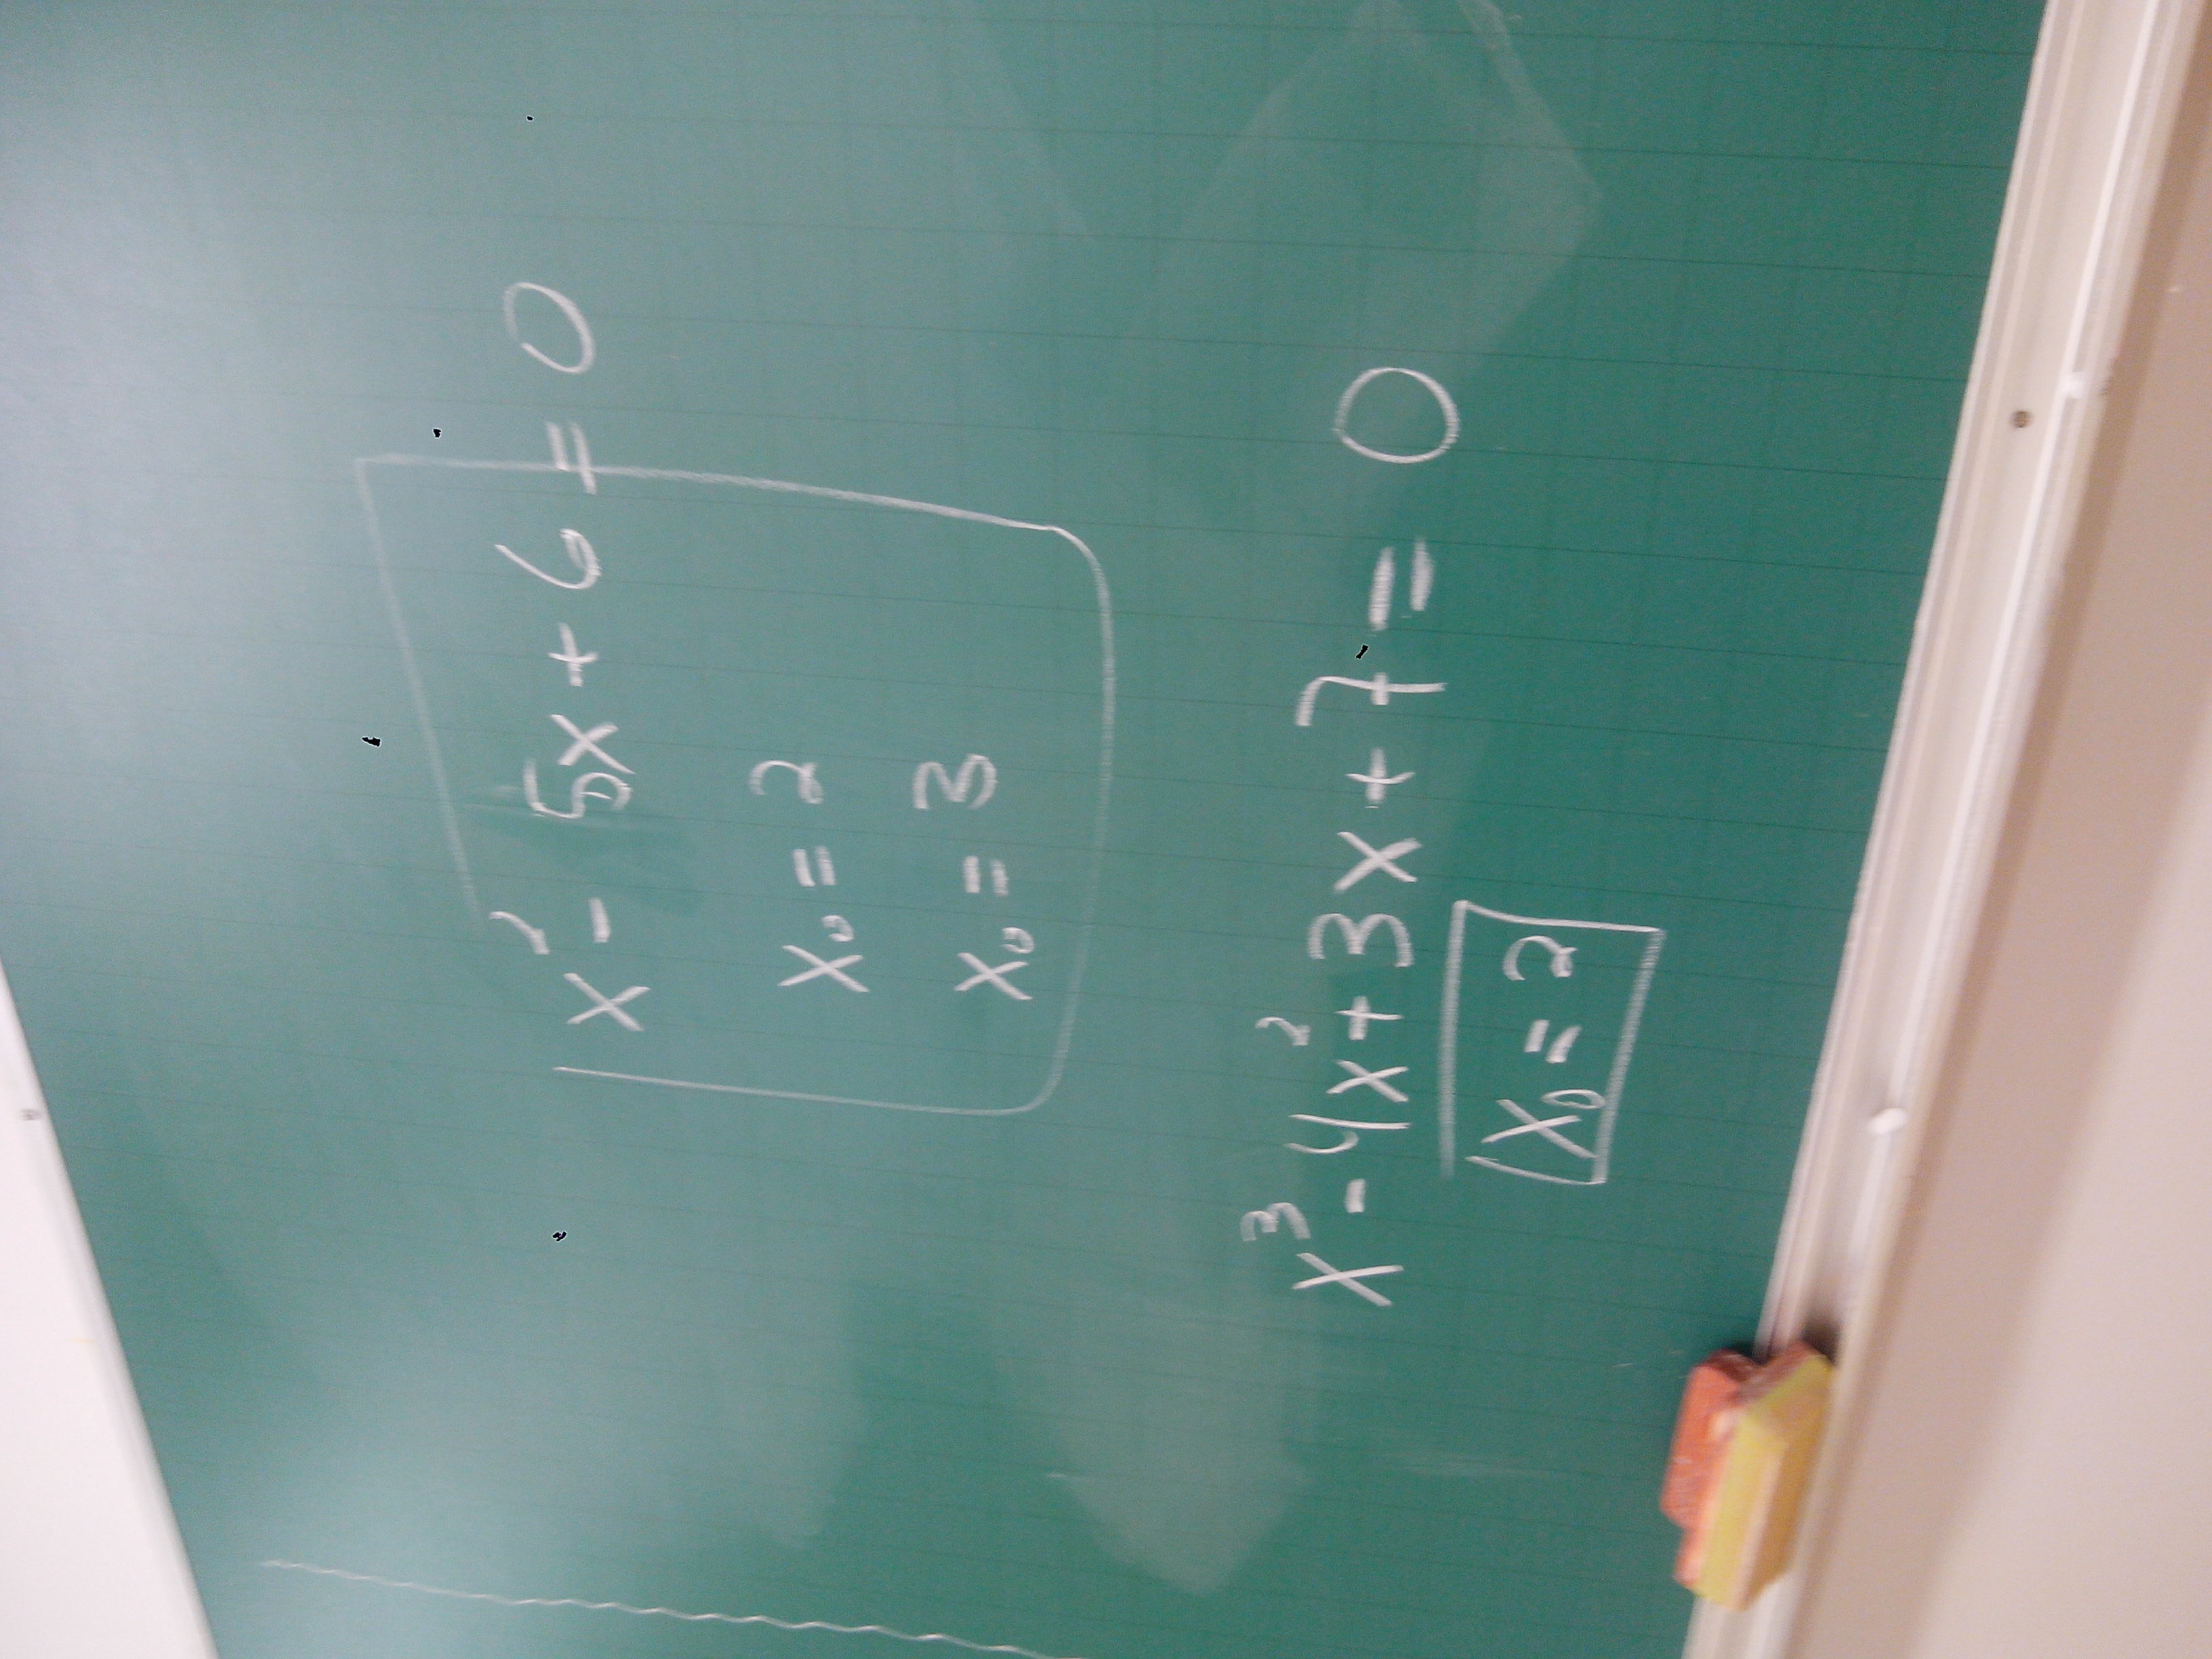 x² - 5x + 6 = 0
x₀ = 2
x₀ = 3
x³ - 4x² + 3x + 7 = 0
x₀ = 2